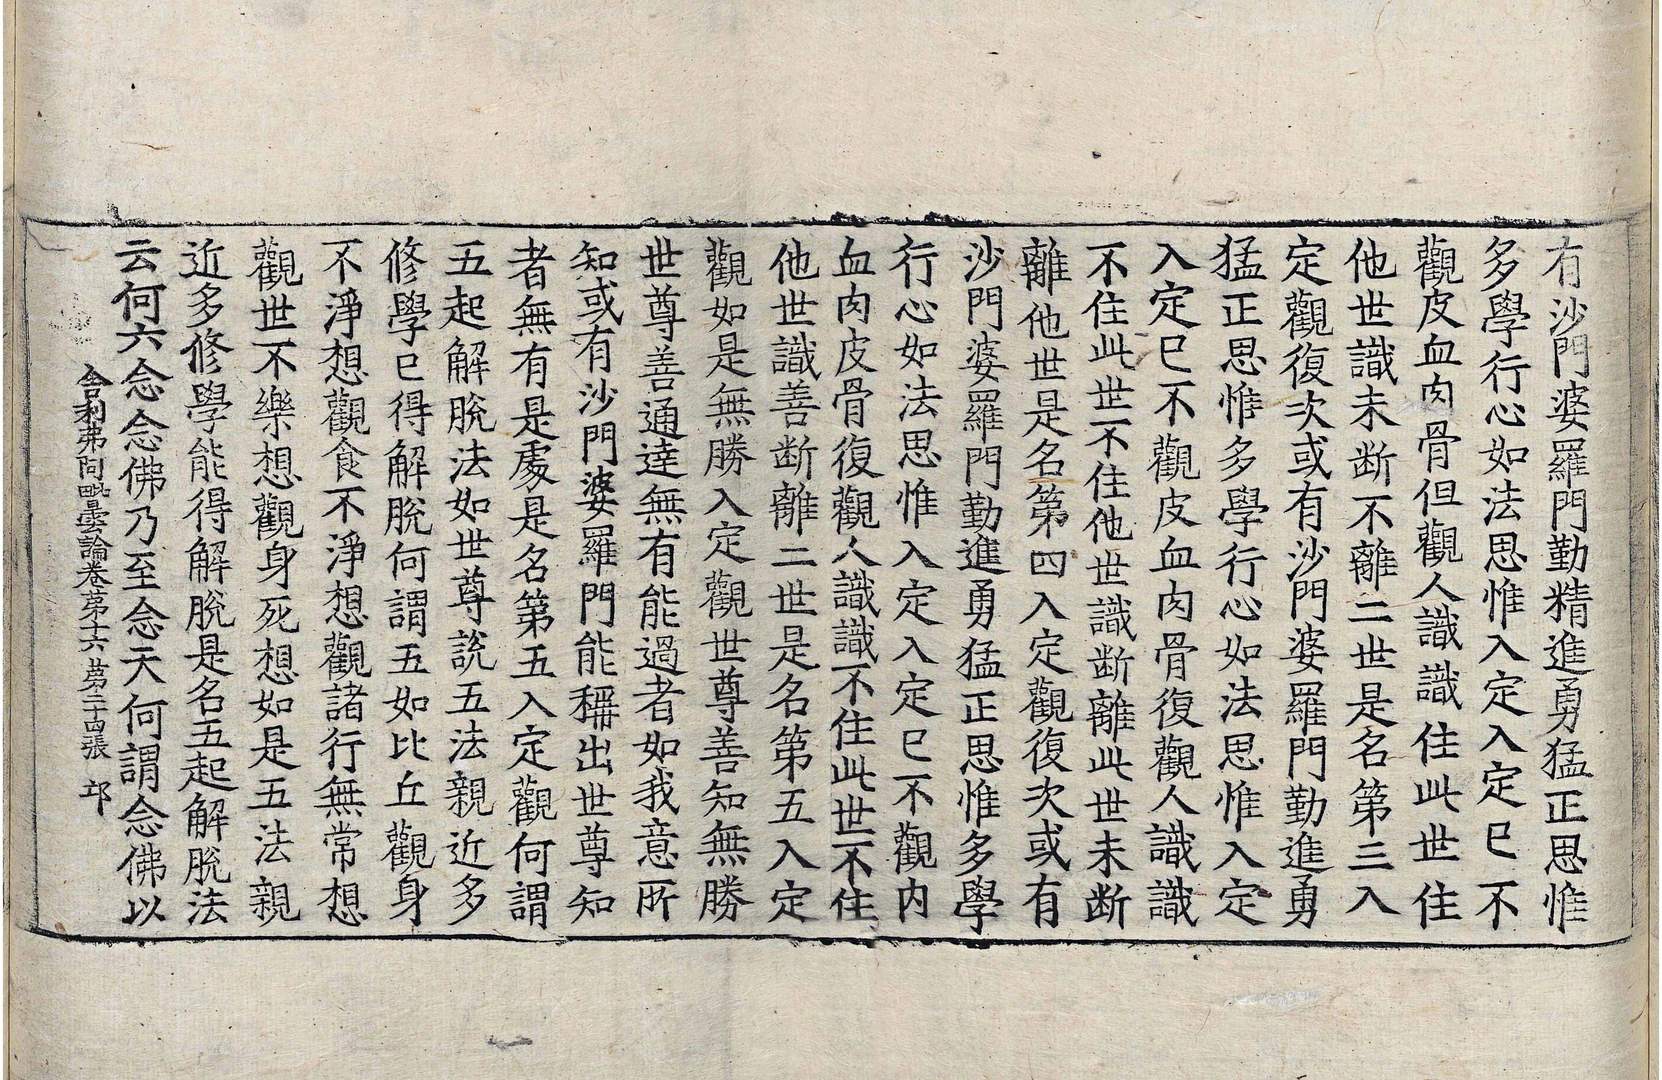 有沙門婆羅門勤精進勇猛正思惟
多學行心如法思惟入定入定已不
觀皮血肉骨但觀人識識住此世住
他世識未断不離二世是名第三入
定觀復次或有沙門婆羅門勤進勇
猛正思惟多學行心如法思惟入定
入定已不觀皮血肉骨復觀人識識
不住此世不住他世識断離此世未断
離他世是名第四入定觀復次或有
沙門婆羅門勤進勇猛正思惟多學
行心如法思惟入定入定已不觀内
血肉皮骨復觀人識識不住此世不住
他世識善断離二世是名第五入定
觀如是無勝入定觀世尊善知無勝
世尊善通達無有能過者如我意所
知或有沙門婆羅門能稱出世尊知
者無有是處是名第五入定觀何謂
五起解脫法如世尊說五法親近多
修學已得解脫何謂五如比丘觀身
不淨想觀食不淨想觀諸行無常想
觀世不樂想觀身死想如是五法親
近多修學能得解脫是名五起解脫法
云何六念念佛乃至念天何謂念佛以
舍利弗阿毗曇論卷第十六 第二十四張 邙